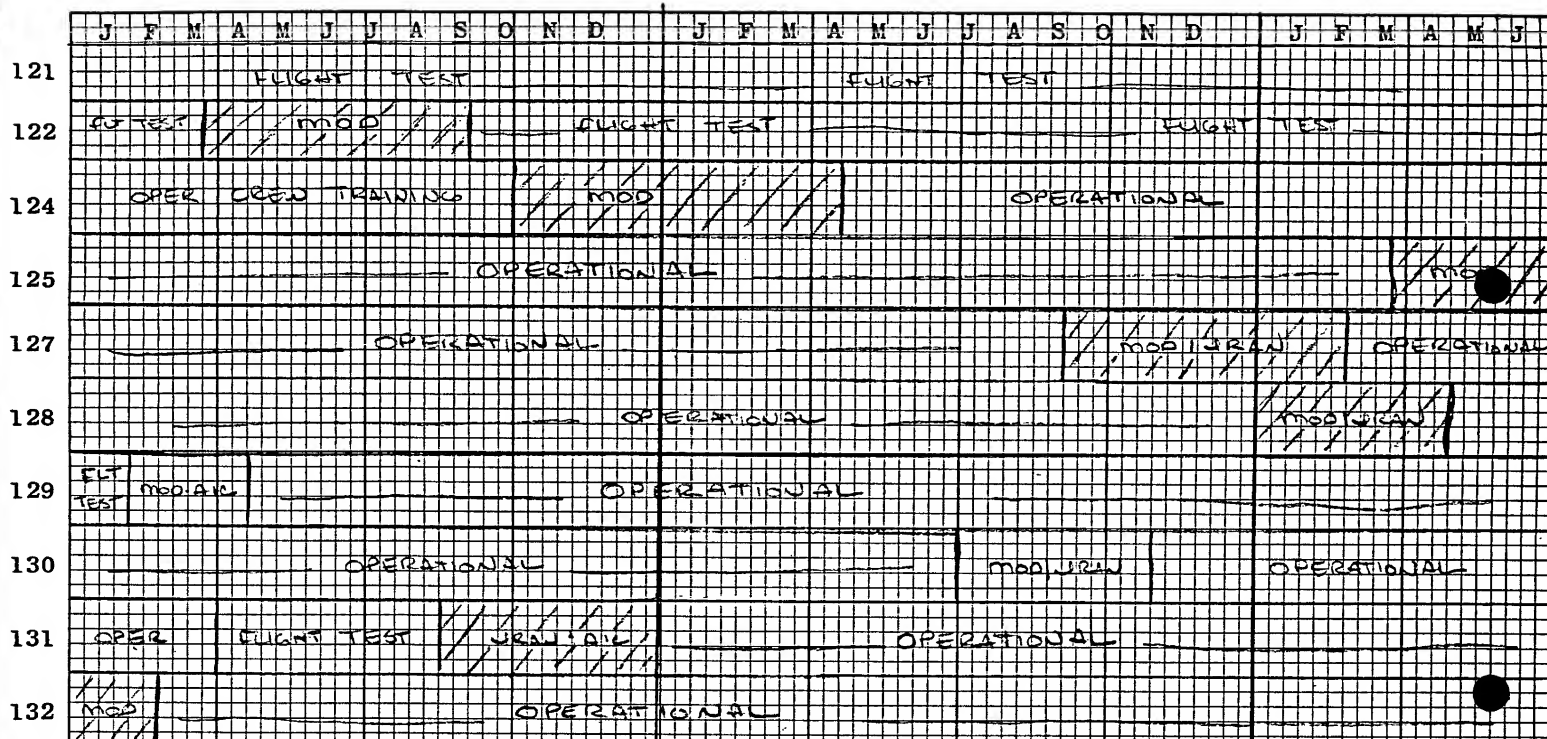 J F M A M J J A S O N D J F M A M J J A S O N D J F M A M J
121 FLIGHT TEST FLIGHT TEST
122 FLT TEST MOD FLIGHT TEST FLIGHT TEST
124 OPER CREW TRAINING MOD OPERATIONAL
125 OPERATIONAL MOD
127 OPERATIONAL MOD/IRAN OPERATIONAL
128 OPERATIONAL MOD/IRAN
129 FLT TEST MOD-AIC OPERATIONAL
130 OPERATIONAL MOD/IRAN OPERATIONAL
131 OPER FLIGHT TEST IRAN-AIC OPERATIONAL
132 MOD OPERATIONAL